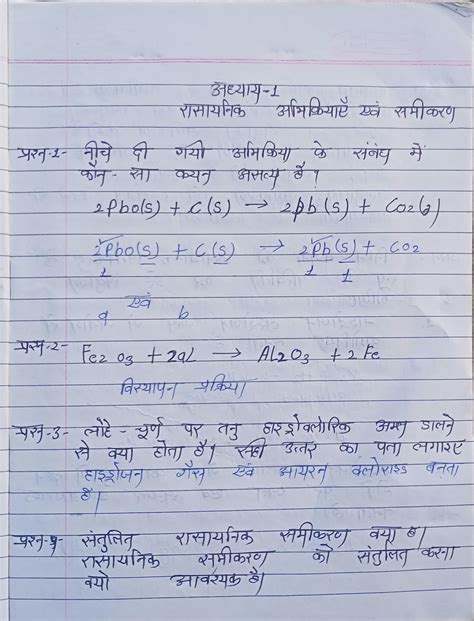 अध्याय-1
रासायनिक अभिक्रियाएँ एवं समीकरण
प्रश्न-1- नीचे दी गयी अभिक्रिया के संबंध में
कौन-सा कथन असत्य है।
2Pbo(s) + C(s) → 2pb(s) + Co2(g)
2Pbo(s) + C(s) → 2Pb(s) + CO2
1 1 1
एवं
a b
प्रश्न-2- Fe2O3 + 2al → AL2O3 + 2 Fe
विस्थापन प्रक्रिया
प्रश्न-3- लौह-चूर्ण पर तनु हाइड्रोक्लोरिक अम्ल डालने
से क्या होता है। सही उत्तर का पता लगाइए
हाइड्रोजन गैस एवं आयरन क्लोराइड बनता
है।
प्रश्न-4- संतुलित रासायनिक समीकरण क्या है।
रासायनिक समीकरण को संतुलित करना
क्यों आवश्यक है।